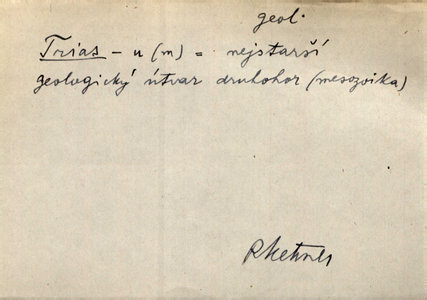 geol.
Trias - u (m) = nejstarší
geologický útvar druhohor (mesozoika)
RKettner